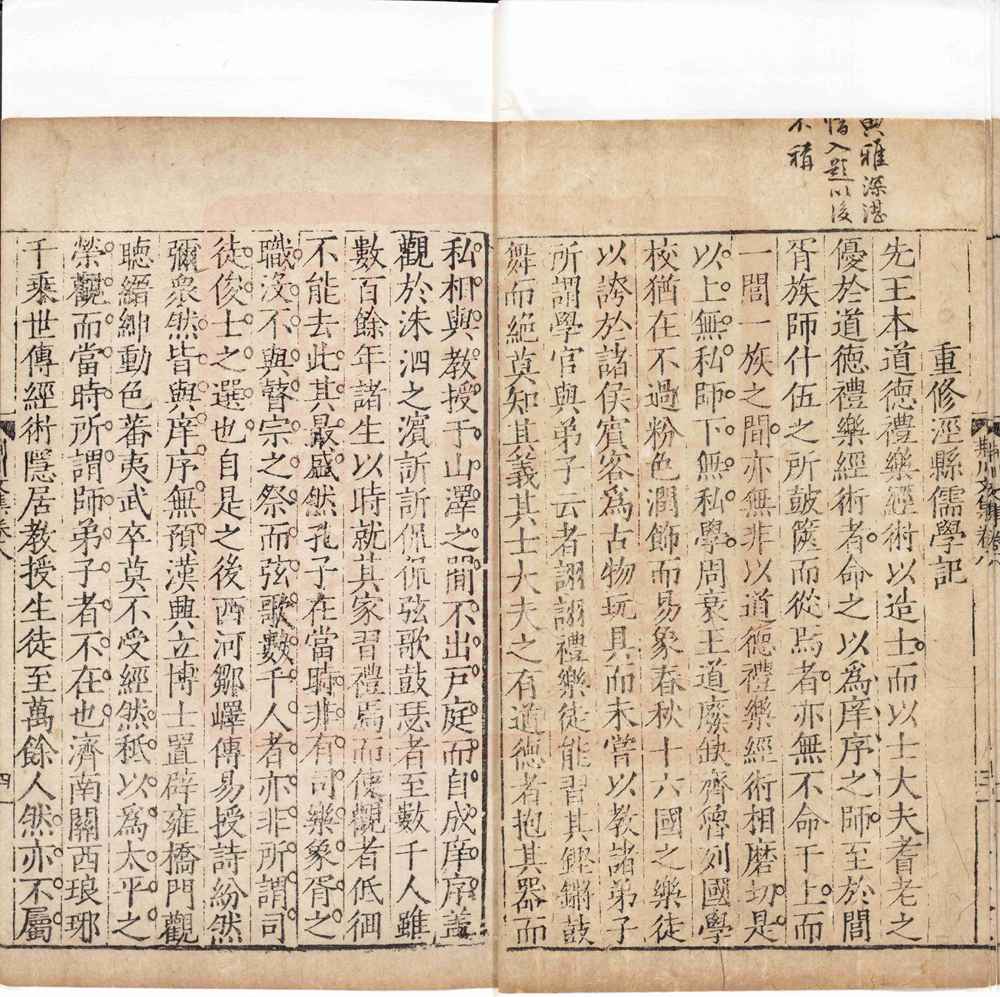 雅深湛
入題以後
不稱
重修涇縣儒學記
先王本道德禮樂經術以造士而以士大夫耆老之
優於道德禮樂經術者命之以為庠序之師至於閭
胥族師什伍之所鼓篋而從焉者亦無不命于上而
一閭一族之間亦無非以道德禮樂經術相磨切是
以上無私師下無私學周衰王道廢缺齊魯列國學
校猶在不過粉色潤飾而易象春秋十六國之樂徒
以誇於諸侯賓客為古物玩具而未嘗以教諸弟子
所謂學官與弟子云者謝謝禮樂徒能習其鏗鏘鼓
舞而絕莫知其義其士大夫之有道德者抱其器而
私相與教授于山澤之間不出戶庭而自成庠序蓋
觀於洙泗之濱訢訢侃侃弦歌鼓瑟者至數千人雖
數百餘年諸生以時就其家習禮焉而使觀者低徊
不能去此其最盛然孔子在當時非有司樂象胥之
職沒不與瞽宗之祭而弦歌數千人者亦非所謂司
徒俊士之選也自是之後西河鄒嶧傳易授詩紛然
彌衆然皆與庠序無預漢興立博士置辟雍橋門觀
聽縉紳動色蕃夷武卒莫不受經然秪以為太平之
榮觀而當時所謂師弟子者不在也濟南關西琅琊
千乘世傳經術隱居教授生徒至萬餘人然亦不屬
荊川文集卷八
三
卷八
四